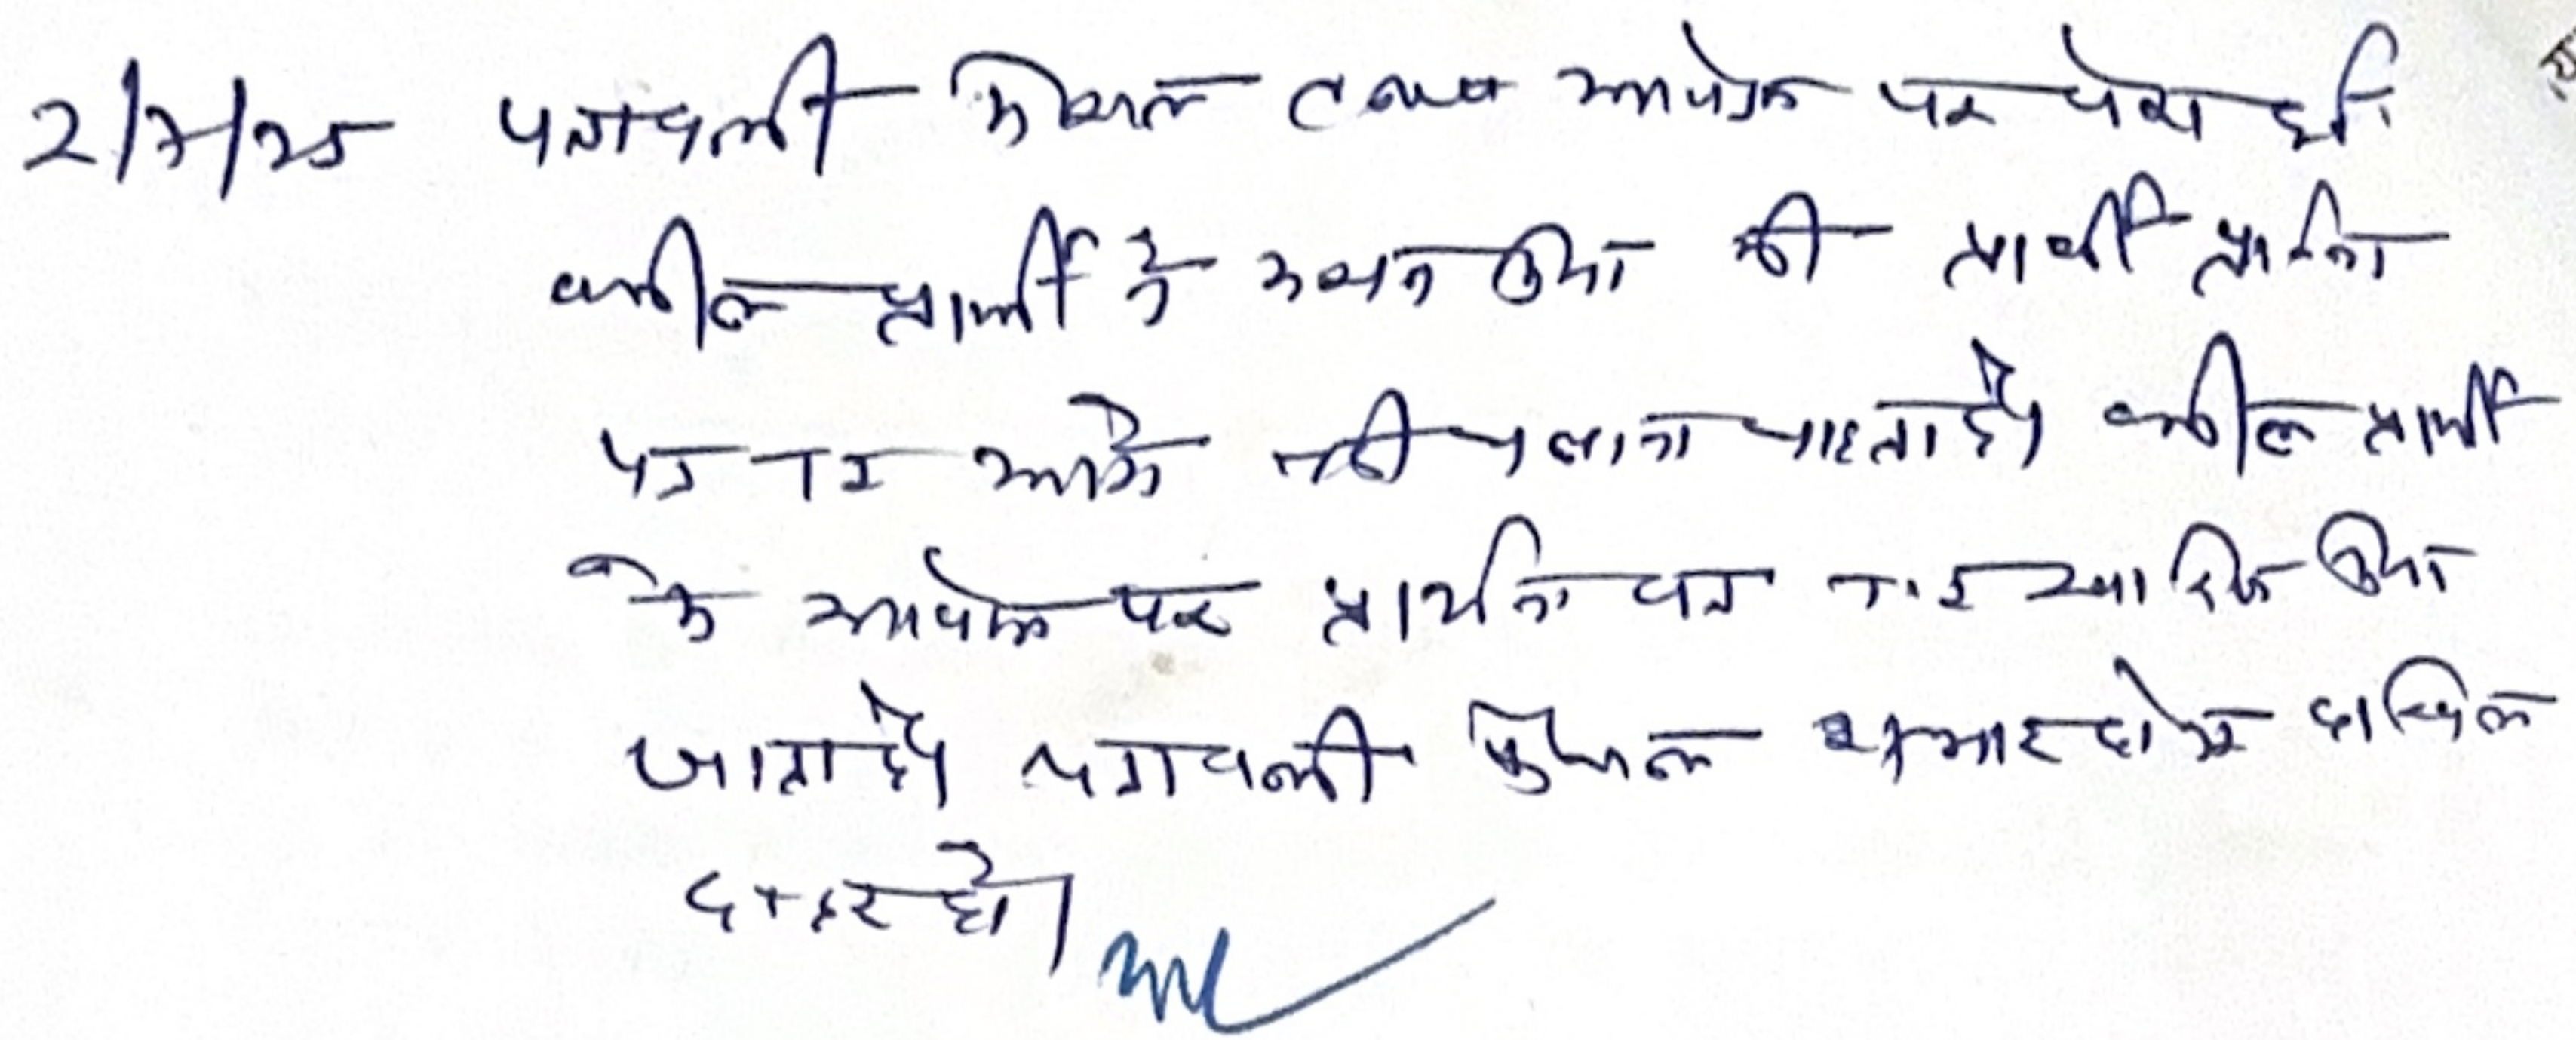 2/7/25 पत्रावली वकील के आवेदन पर पेश हुई
वकील प्रार्थी ने कथन किया की प्रार्थी प्रार्थना
पत्र T.I आगे नही चलाना चाहता है। वकील प्रार्थी
के आवेदन पर प्रार्थना पत्र T.I खारिज किया
जाता है। पत्रावली फैसल शुमार होकर दाखिल
दफ्तर हो।